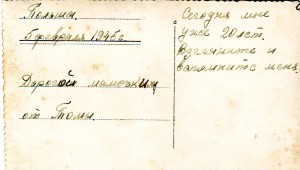 Польша.
5 февраля 1946 г.
Дорогой мамочки
от Томы.
Сегодня мне
уже 20 лет.
Взгляните и
вспомните меня